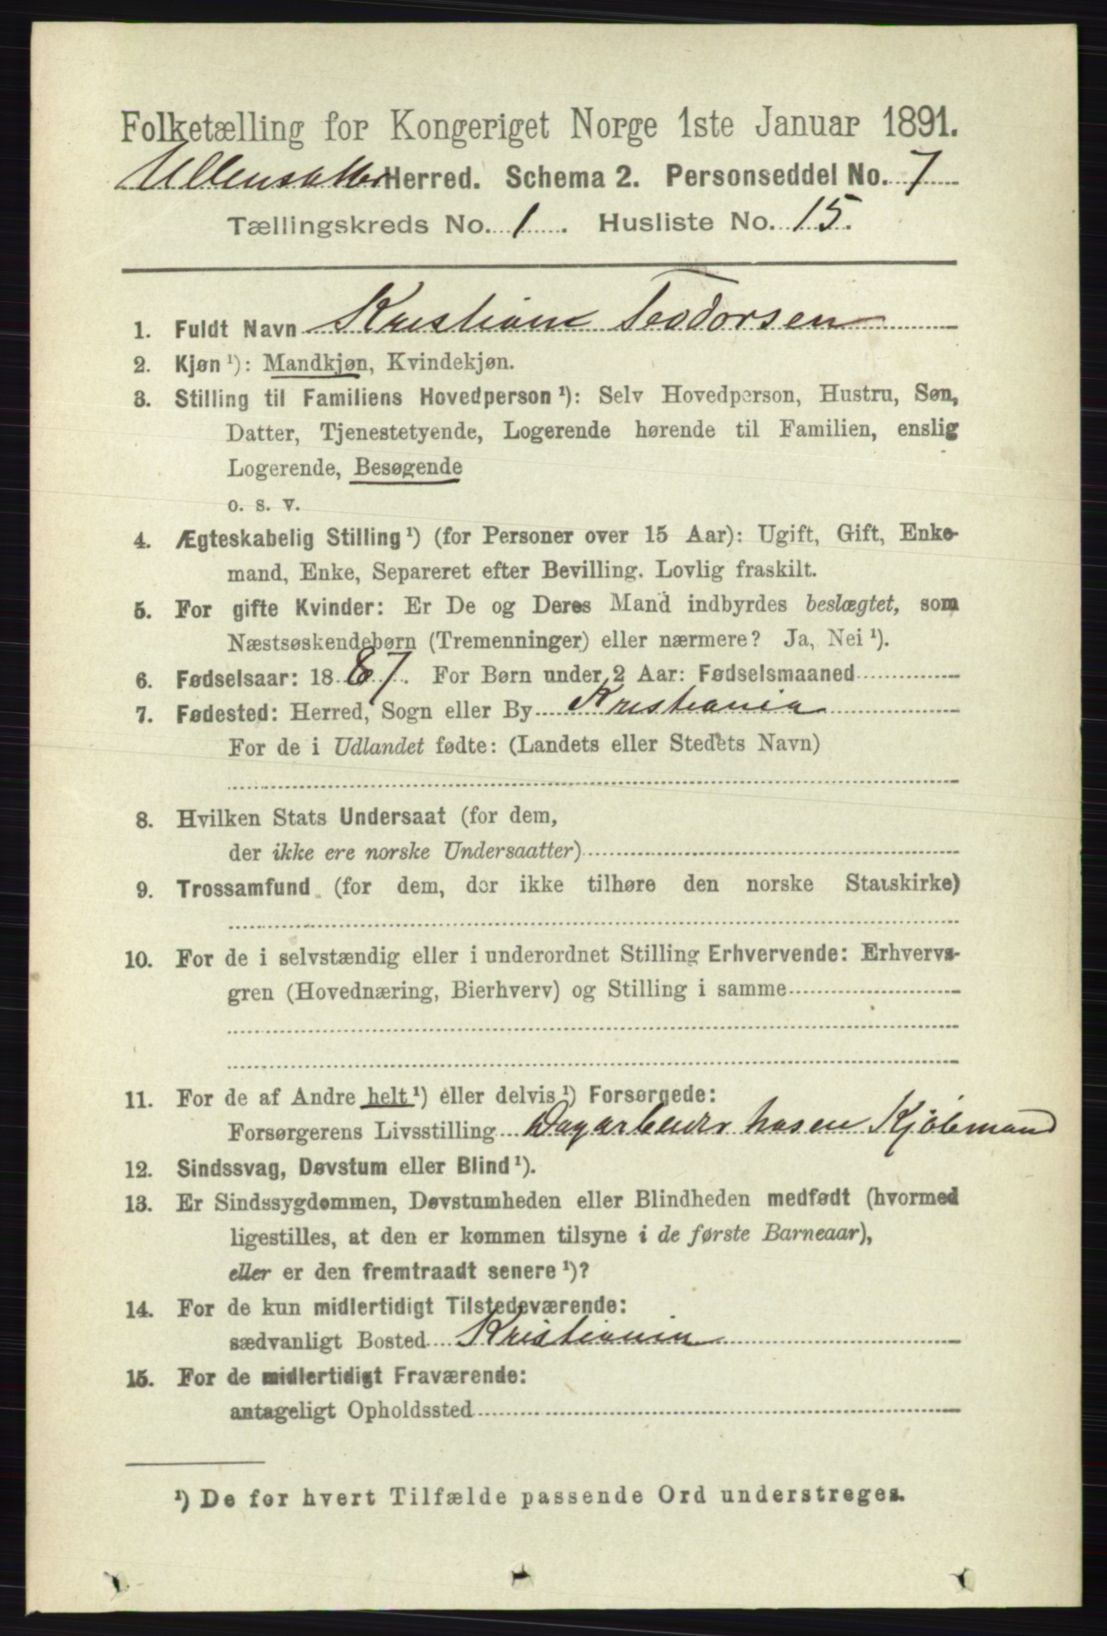 Folketælling for Kongeriget Norge 1ste Januar 1891.
Ullensaker Herred. Schema 2. Personseddel No. 7
Tællingskreds No. 1. Husliste No. 15.
1. Fuldt Navn Kristian Teodorsen
2. Kjøn ¹): Mandkjøn, Kvindekjøn.
3. Stilling til Familiens Hovedperson ¹): Selv Hovedperson, Hustru, Søn,
Datter, Tjenestetyende, Logerende hørende til Familien, enslig
Logerende, Besøgende
o. s. v.
4. Ægteskabelig Stilling ¹) (for Personer over 15 Aar): Ugift, Gift, Enke-
mand, Enke, Separeret efter Bevilling. Lovlig fraskilt.
5. For gifte Kvinder: Er De og Deres Mand indbyrdes beslægtet, som
Næstsøskendebørn (Tremenninger) eller nærmere? Ja, Nei ¹).
6. Fødselsaar: 1887. For Børn under 2 Aar: Fødselsmaaned
7. Fødested: Herred, Sogn eller By Kristiania
For de i Udlandet fødte: (Landets eller Stedets Navn)
8. Hvilken Stats Undersaat (for dem,
der ikke ere norske Undersaatter)
9. Trossamfund (for dem, der ikke tilhøre den norske Statskirke)
10. For de i selvstændig eller i underordnet Stilling Erhvervende: Erhvervs-
gren (Hovednæring, Bierhverv) og Stilling i samme
11. For de af Andre helt ¹) eller delvis ¹) Forsørgede:
Forsørgerens Livsstilling Dagarbeider hosen Kjöbmand
12. Sindssvag, Døvstum eller Blind ¹).
13. Er Sindssygdommen, Døvstumheden eller Blindheden medfødt (hvormed
ligestilles, at den er kommen tilsyne i de første Barneaar),
eller er den fremtraadt senere ¹)?
14. For de kun midlertidigt Tilstedeværende:
sædvanligt Bosted Kristiania
15. For de midlertidigt Fraværende:
antageligt Opholdssted
¹) De for hvert Tilfælde passende Ord understreges.